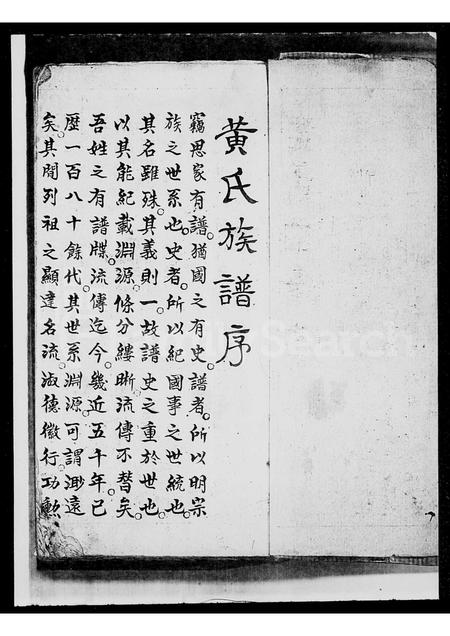 黃氏族譜序
竊思家有譜。猶國之有史。譜者。所以明宗
族之世系也。史者。所以紀國事之世統也。
其名雖殊。其義則一。故譜史之重於世也。
以其能紀載淵源。條分縷晰。流傳不替矣。
吾姓之有譜牒。流傳迄今。幾近五千年。已
歷一百八十餘代。其世系淵源。可謂渺遠
矣。其間列祖之顯達名流。淑德徽行。功勳